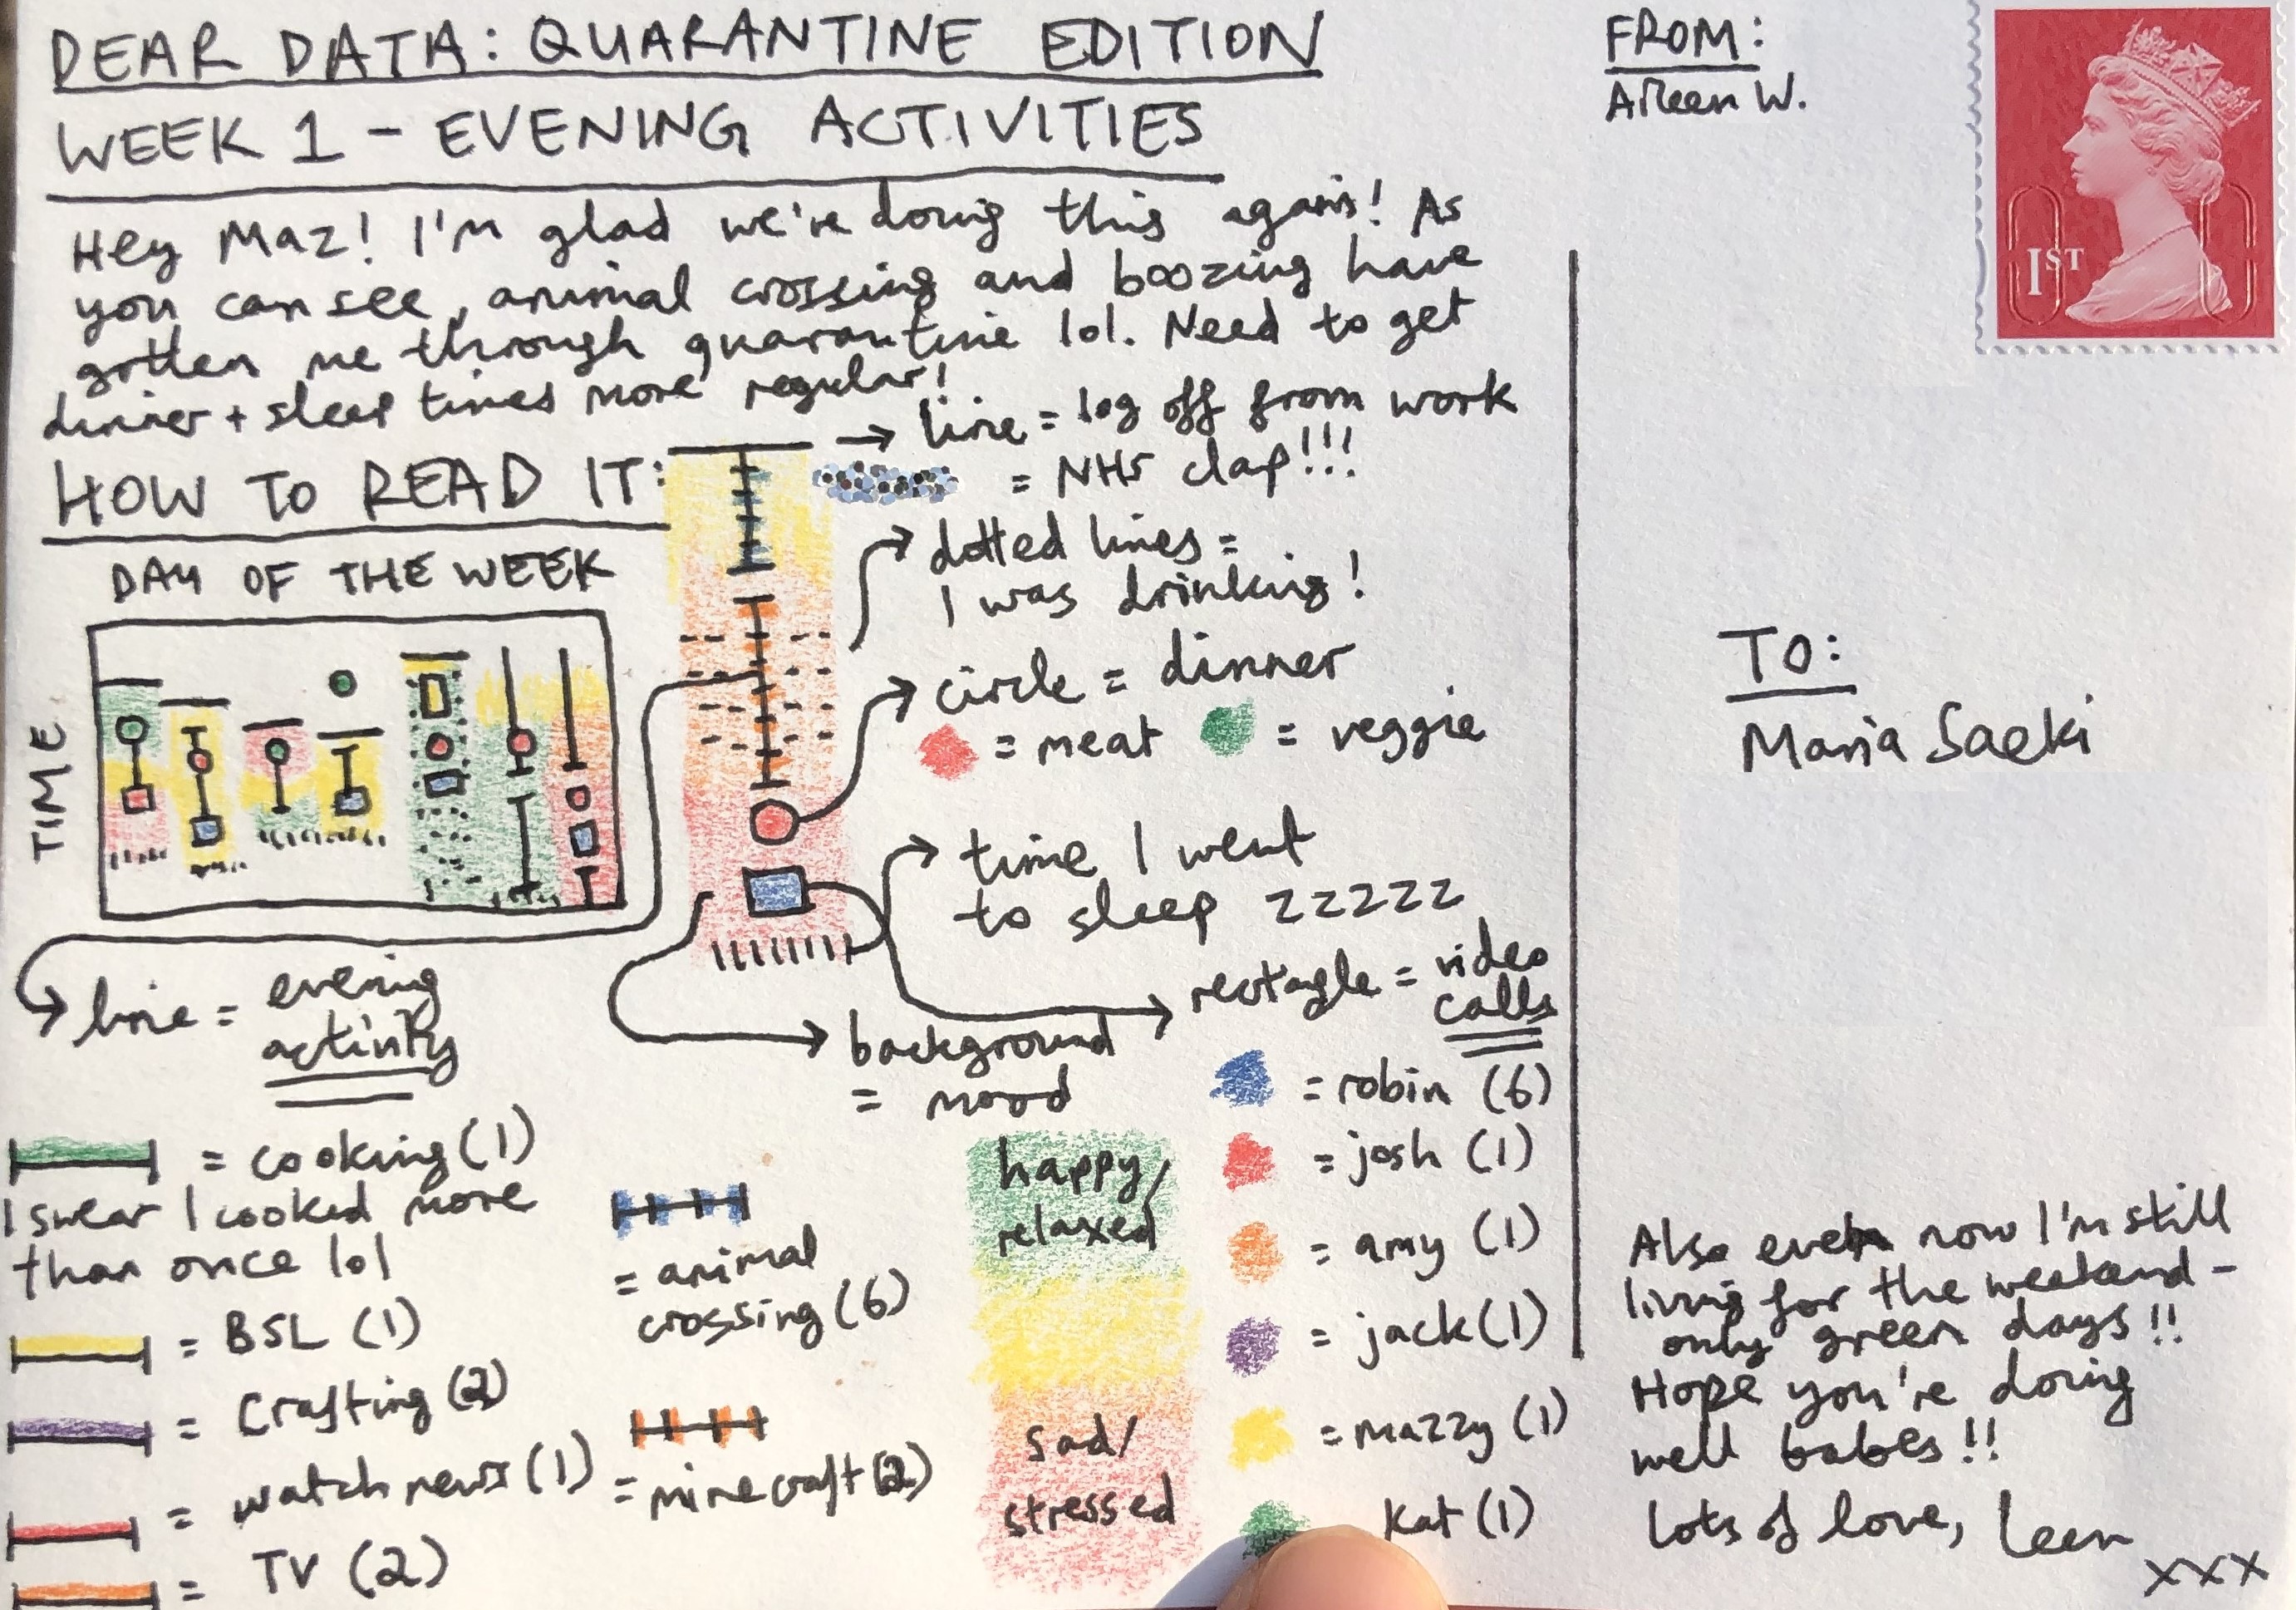 DEAR DATA: QUARANTINE EDITION
WEEK 1 - EVENING ACTIVITIES
Hey Maz! I'm glad we're doing this again! As
you can see, animal crossing and boozing have
gotten me through quarantine lol. Need to get
dinner + sleep times more regular!
HOW TO READ IT:
→ line = log off from work
= NHS clap!!!
dotted lines =
I was drinking!
circle = dinner
= meat = veggie
time I went
to sleep zzzzz
rectagle = video
calls
background
= mood
DAY OF THE WEEK
TIME
line = evening
activity
= cooking (1)
I swear I cooked more
than once lol
= BSL (1)
= Crafting (2)
= watch news (1)
= TV (2)
= animal
crossing (6)
= minecraft (2)
happy/
relaxed
sad/
stressed
= robin (6)
= josh (1)
= amy (1)
= jack (1)
= mazzy (1)
Kat (1)
FROM:
Aileen W.
1ST
TO:
Maria Saeki
Also even now I'm still
living for the weekend -
only green days!!
Hope you're doing
well babes!!
Lots of love, Leen
xxx